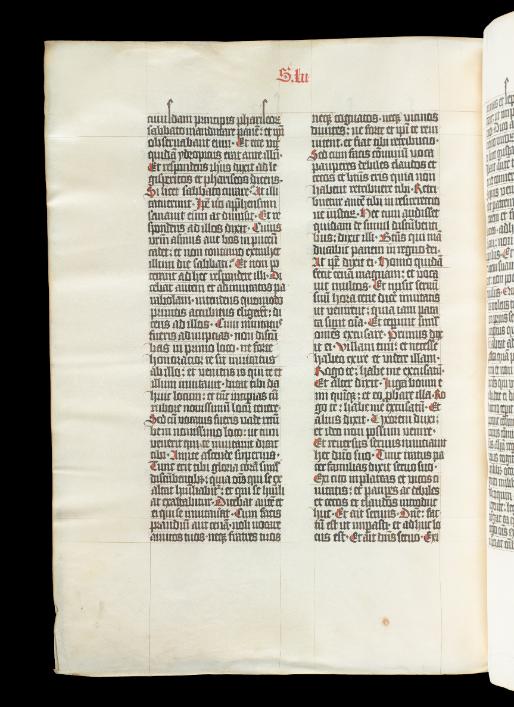 S. Lu
cuiusdam principis phariseoꝝ
sabbato manducare panē: et ipī
observabant eum. Et ecce hō
quidā ydropicus erat ante illū.
Et respondens ihūs dixit ad le
gisperitos et phariseos dicens.
Si licet sabbato curare. At illi
tacuerunt. Ipē vō apphensum
sanavit eum ac dimisit. Et re
spondens ad illos dixit. Cuius
vrm̄ asinus aut bos in puteū
cadet: et non continuo extrahet
illum die sabbati. Et non po
terant ad hec respondere illi. Di
cebat autem et ad invitatos pa
rabolam. intendens quomodo
primos accubitus eligerēt: di
cens ad illos. Cum invitatꝰ
fueris ad nuptias. non discū
bas in primo loco. ne forte
honoratior te sit invitatus
ab illo: et veniens is qui te et
illum invitavit. dicat tibi da
huic locum: et tūc incipias cū
rubore novissimū locū tenere.
Sed cū vocatus fueris vade recū
be in novissimo loco: ut cum
venerit qui te invitavit dicat
tibi. Amice ascende superius.
Tunc erit tibi gloria corā simł
discūbentibꝫ: quia ōīs qui se ex
altat hūiliabit̄: et qui se hūili
at exaltabitur. Dicebat autē et
ei qui se invitaverat. Cum facis
prandiū aut cenā. noli vocare
amicos tuos. neqꝫ fratres tuos
neqꝫ cognatos. neqꝫ vicinos
divites: ne forte et ipī te rein
vitent. et fiat tibi retributio.
Sed cum facis cōviviū voca
pauperes debiles claudos et
cecos et beatus eris quia non
habent retribuere tibi. Retri
buetur autē tibi in resurrectio
ne iustoꝝ. Hec cum audisset
quidam de simul discūbenti
bus: dixit illi. Beatus qui mā
ducabit panem in regno dei.
At ipē dixit ei. Homo quidā
fecit cenā magnam: et voca
vit multos. Et misit servū
suū hora cene dicē invitatis
ut venirent: quia iam para
ta sunt oīa. Et ceperunt simł
omēs excusare. Primus dix
it ei. Villam emi: et necesse
habeo exire et videre illam.
Rogo te: habe me excusatū.
Et alter dixit. Juga boum e
mi quīqꝫ: et eo pbare illa. Ro
go te: habe me excusatū. Et
alius dixit. Uxorem duxi:
et ideo non possum venire.
Et reversus servus nunciavit
hec dn̄o suo. Tunc iratus pa
ter familias dixit servo suo.
Exi cito in plateas et vicos ci
vitatis: et paupes ac debiles
et cecos et claudos introduc
huc. Et ait servus. Dn̄e: fac
tū est ut impasti. et adhuc lo
cus est. Et ait dn̄s servo. Exi